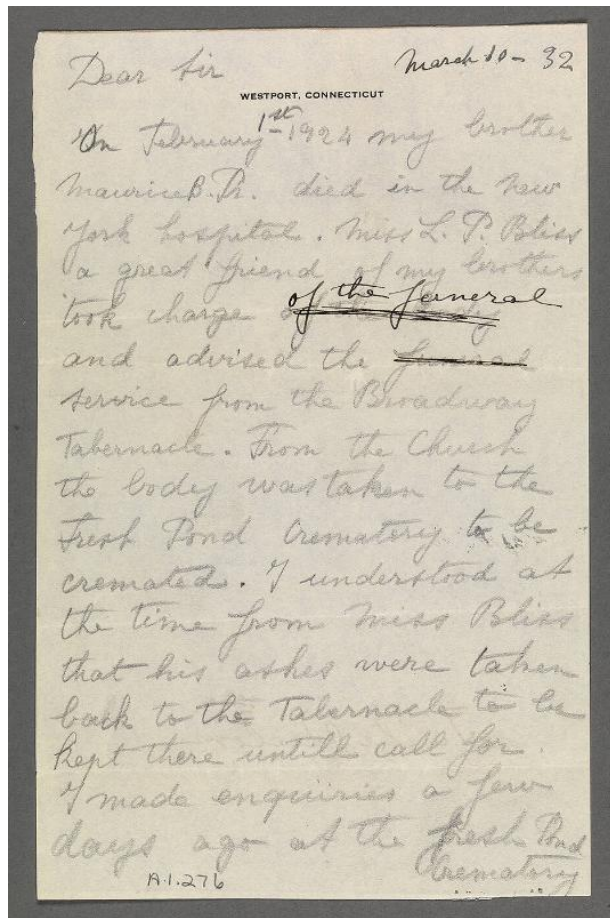 March 10 - 32
Dear Sir
WESTPORT, CONNECTICUT
On February 1st 1924 my brother
Maurice B. Pr. died in the New
York hospital. Miss L. P. Bliss
a great friend of my brothers
took charge of the funeral
and advised the funeral
service from the Broadway
Tabernacle. From the Church
the body was taken to the
Fresh Pond Crematery to be
cremated. I understood at
the time from Miss Bliss
that his ashes were taken
back to the Tabernacle to be
kept there untill call for.
I made enquiries a few
days ago at the Fresh Pond
Crematery
A.1.276